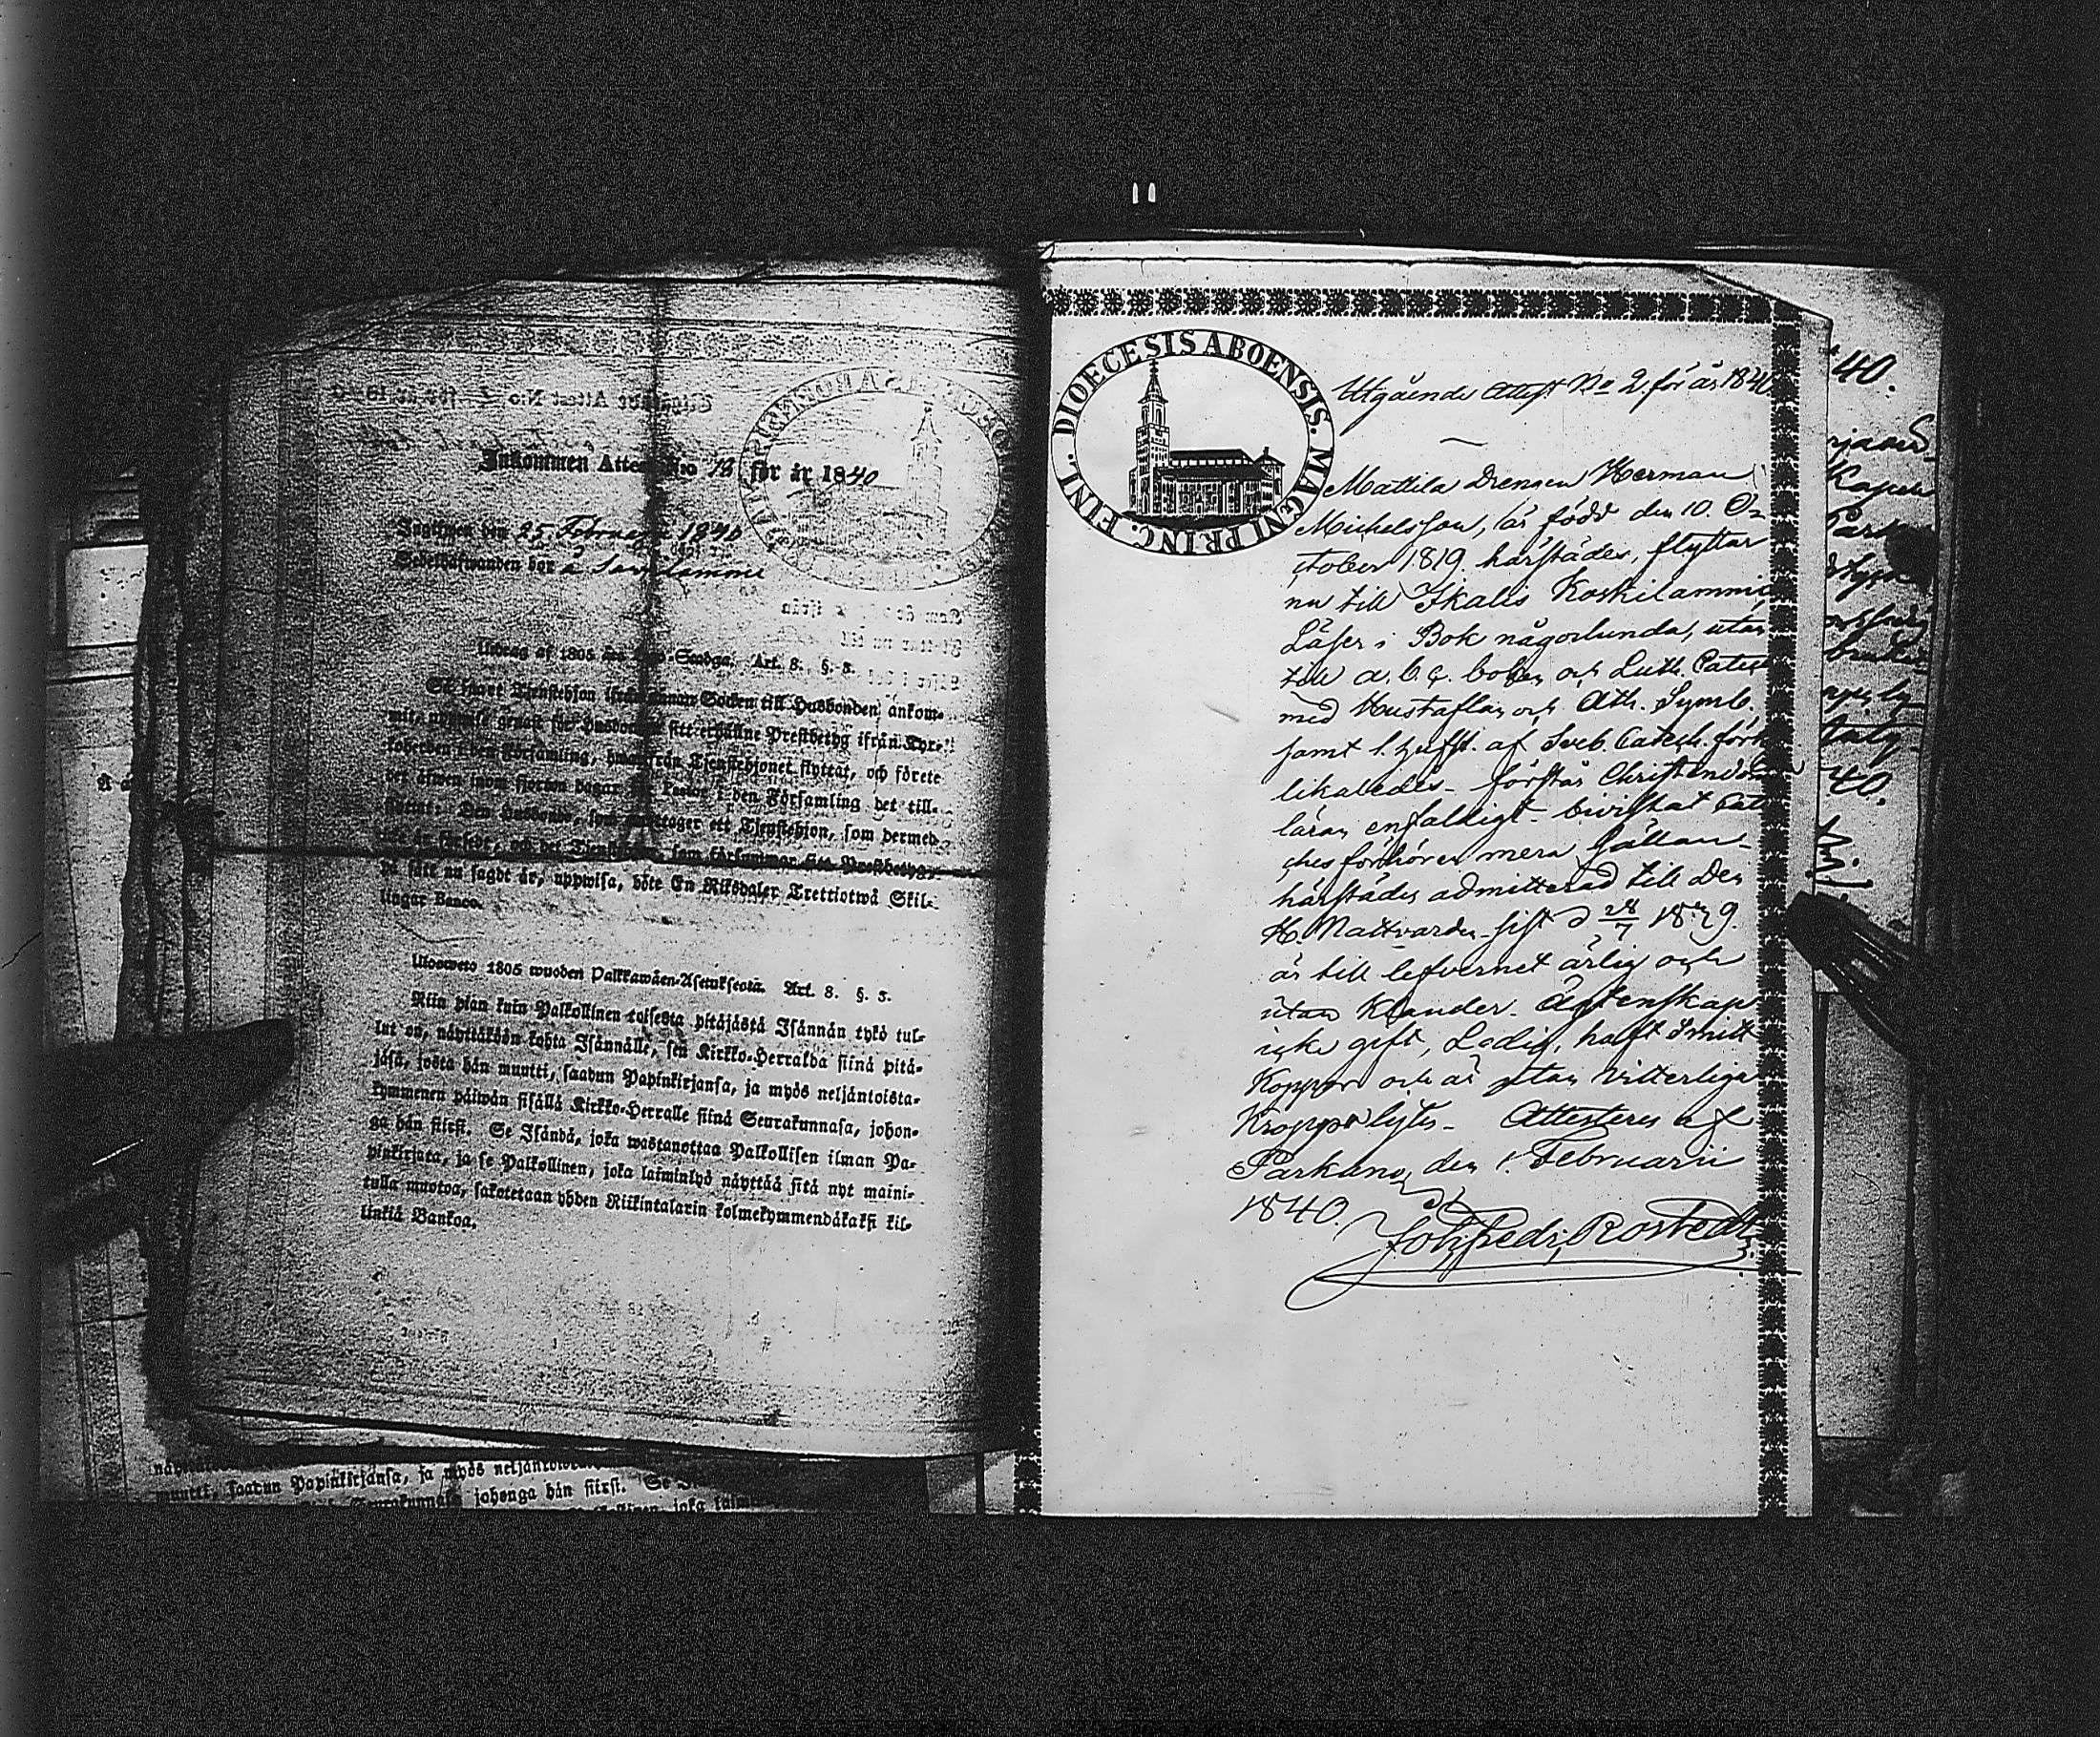 Inkommen Attest N:o 18 för år 1840
Ingifwen den 25 Februari 1840
Sedelhafwanden bor å
Utdrag af 1805 års Stadga. Art. 8. §. 3.
Så snart Tjenstehjon ifrån annan Socken till Husbonden ankom-
mit, uppwise genast för Husbonden sitt erhållne Prestbetyg ifrån Kyr-
koherden i den Församling, hwarifrån Tjenstehjonet flyttat, och förete
det äfwen inom fjorton dagar för Pastor i den Församling det till-
flyttat: Den Husbonde, som emottager ett Tjenstehjon, som dermed
icke är försedt, och det Tjenstehjon, som försummar sitt Prestbetyg
på sätt nu sagdt är, uppwisa, böte En Riksdaler Trettiotwå Skil-
lingar Banco.
Ulosweto 1805 wuoden Palkkawäen-Asetuksesta. Art. 8. §. 3.
Niin pian kuin Palkollinen toisesta pitäjästä Isännän tykö tul-
lut on, näyttäköön kohta Isännälle, sen Kirkko-Herralda siinä pitä-
jäsä, josta hän muutti, saadun Papinkirjansa, ja myös neljäntoista-
kymmenen päiwän sisällä Kirkko-Herralle siinä Seurakunnasa, johon-
ga hän siirsi. Se Isändä, joka wastanottaa Palkollisen ilman Pa-
pinkirjata, ja se Palkollinen, joka laiminlyö näyttää sitä nyt maini-
tulla muotoa, sakotetaan yhden Riikintalarin kolmekymmendäkaksi kil-
linkiä Bankoa.
muutti, saadun Papinkirjansa, ja myös neljäntoista
Seurakunnasa johonga hän siirsi. Se
DIOECESIS ABOENSIS. MAGNI PRINC. FINL.
Utgående Attest No 2 för år 1840
Mattila Drengen Herman
Michelsson, är född den 10. Oc-
tober 1819 härstädes, flyttar
nu till Ikalis Koskilammi
Läser i Bok någorlunda, utan
till a.b.c. boken och Luth. Catech
med Hustaflan och Ath. Symb.
samt 1. hufst. af Sveb. Catech. förkl
likaledes - förstår Christendoms
läran enfaldigt - bivistat Cate
ches förhören mera sällan -
härstädes admitterad till Den
H. Nattvarden sist d 28/7 1839.
är till lefvernet ärlig och
utan Klander. Ägtenskap
icke gift, Ledig, haft Smitt
Koppor och är utan vitterliga
Kroppslytes - Attesteras af
Parkano den 1. Februarii
1840.
Joh. Fredr. Rostedt
40.
40.